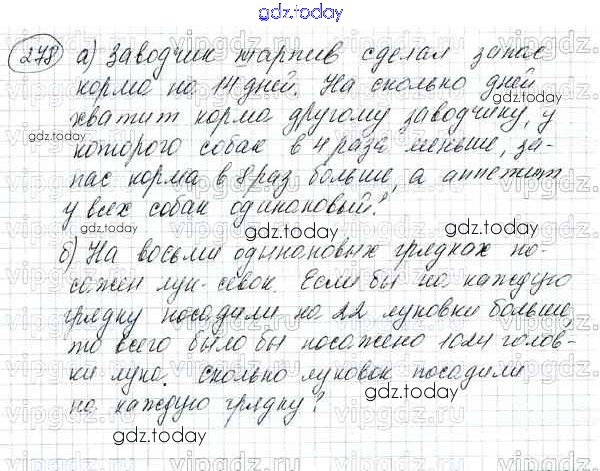 gdz.today
278 а) Заводчик таргив сделал запас
корма на 14 дней. На сколько дней
хватит корма другому заводчику, у
которого собак в 4 раза меньше, за-
пас корма в 8 раз больше, а аппетит
у всех собак одинаковый?
б) На восьми одинаковых грядках по-
сажен лук-севок. Если бы на каждую
грядку посадили на 22 луковки больше,
то всего было бы посажено 1024 голов-
ки лука. Сколько луковок посадили
на каждую грядку?
gdz.today
gdz.today
gdz.today
gdz.today
gdz.today
gdz.today
gdz.today
gdz.today
gdz.today